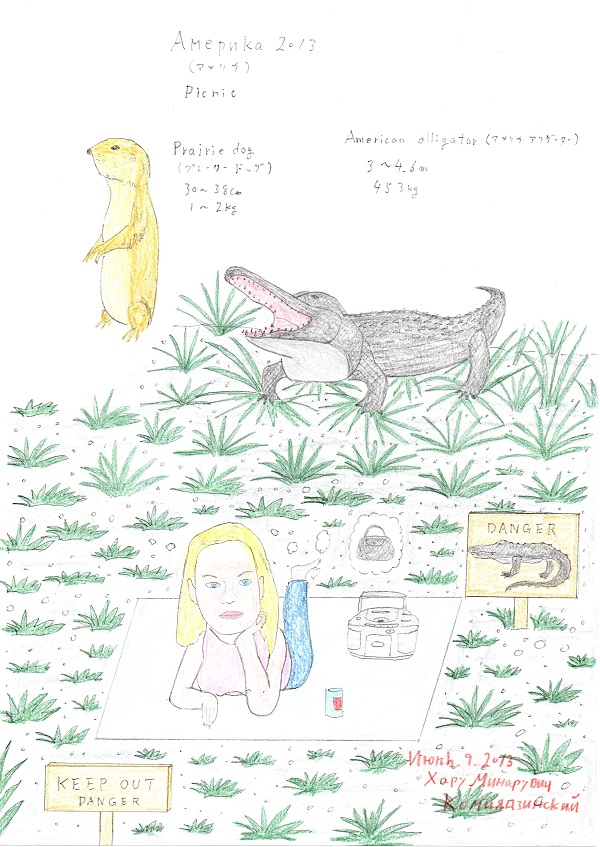 Америка 2013
(アメリカ)
Picnic
Prairie dog
(プレーリードッグ)
30~38cm
1~2kg
American alligator (アメリカ アリゲーター)
3~4.6m
453kg
DANGER
KEEP OUT
DANGER
Июнь 9. 2013
Хару Минарувич